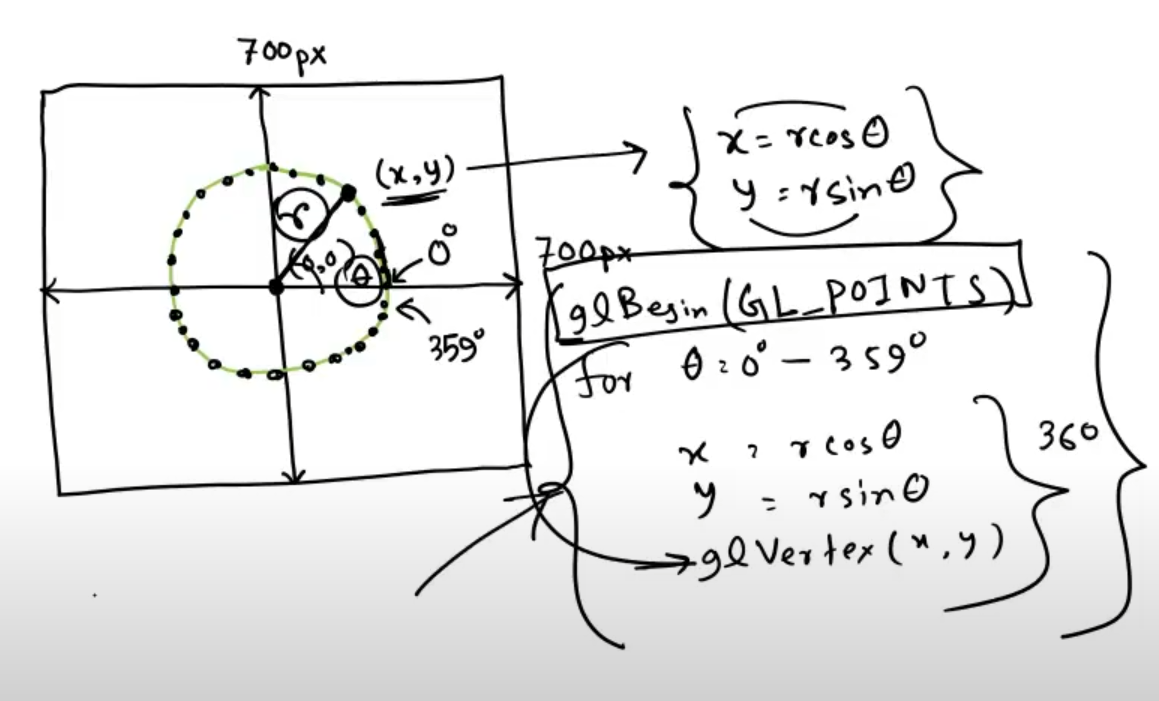 700px
(x,y)
r
(0,0)
θ
0°
359°
x = rcosθ
y = rsinθ
700px
glBegin(GL_POINTS)
for θ = 0° - 359°
x = rcosθ
y = rsinθ
glVertex(x,y)
360